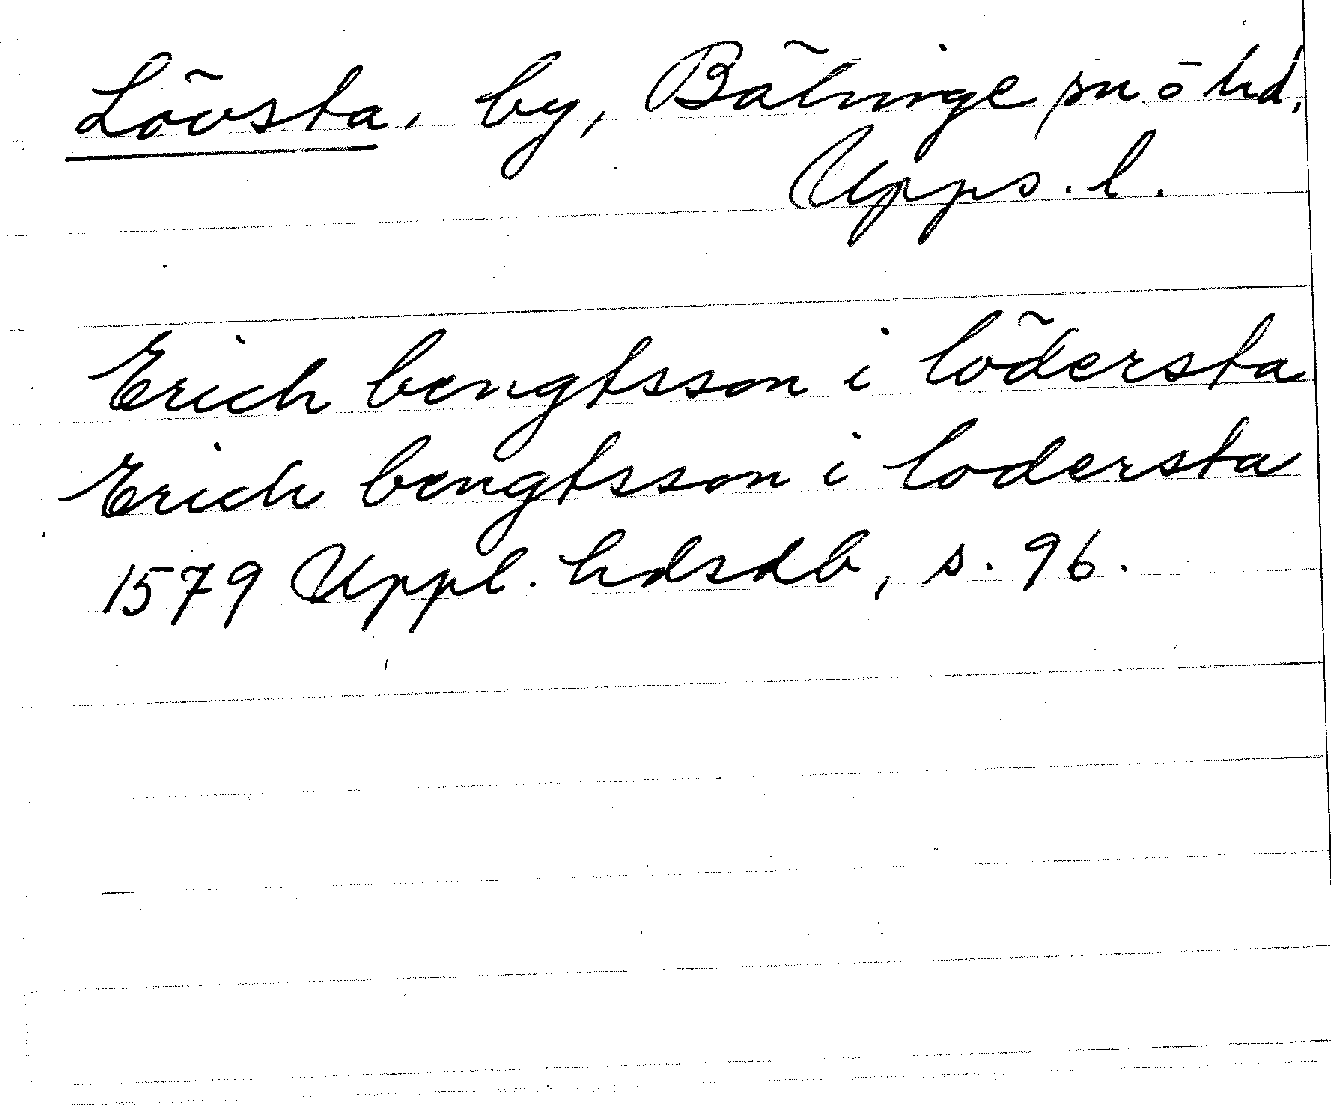 Lövsta, by, Bälinge sn ö hd,
Upps. l.
Erich bengtsson i lödersta
Erich bengtsson i lodersta
1579 Uppl. hdsdb, s. 96.